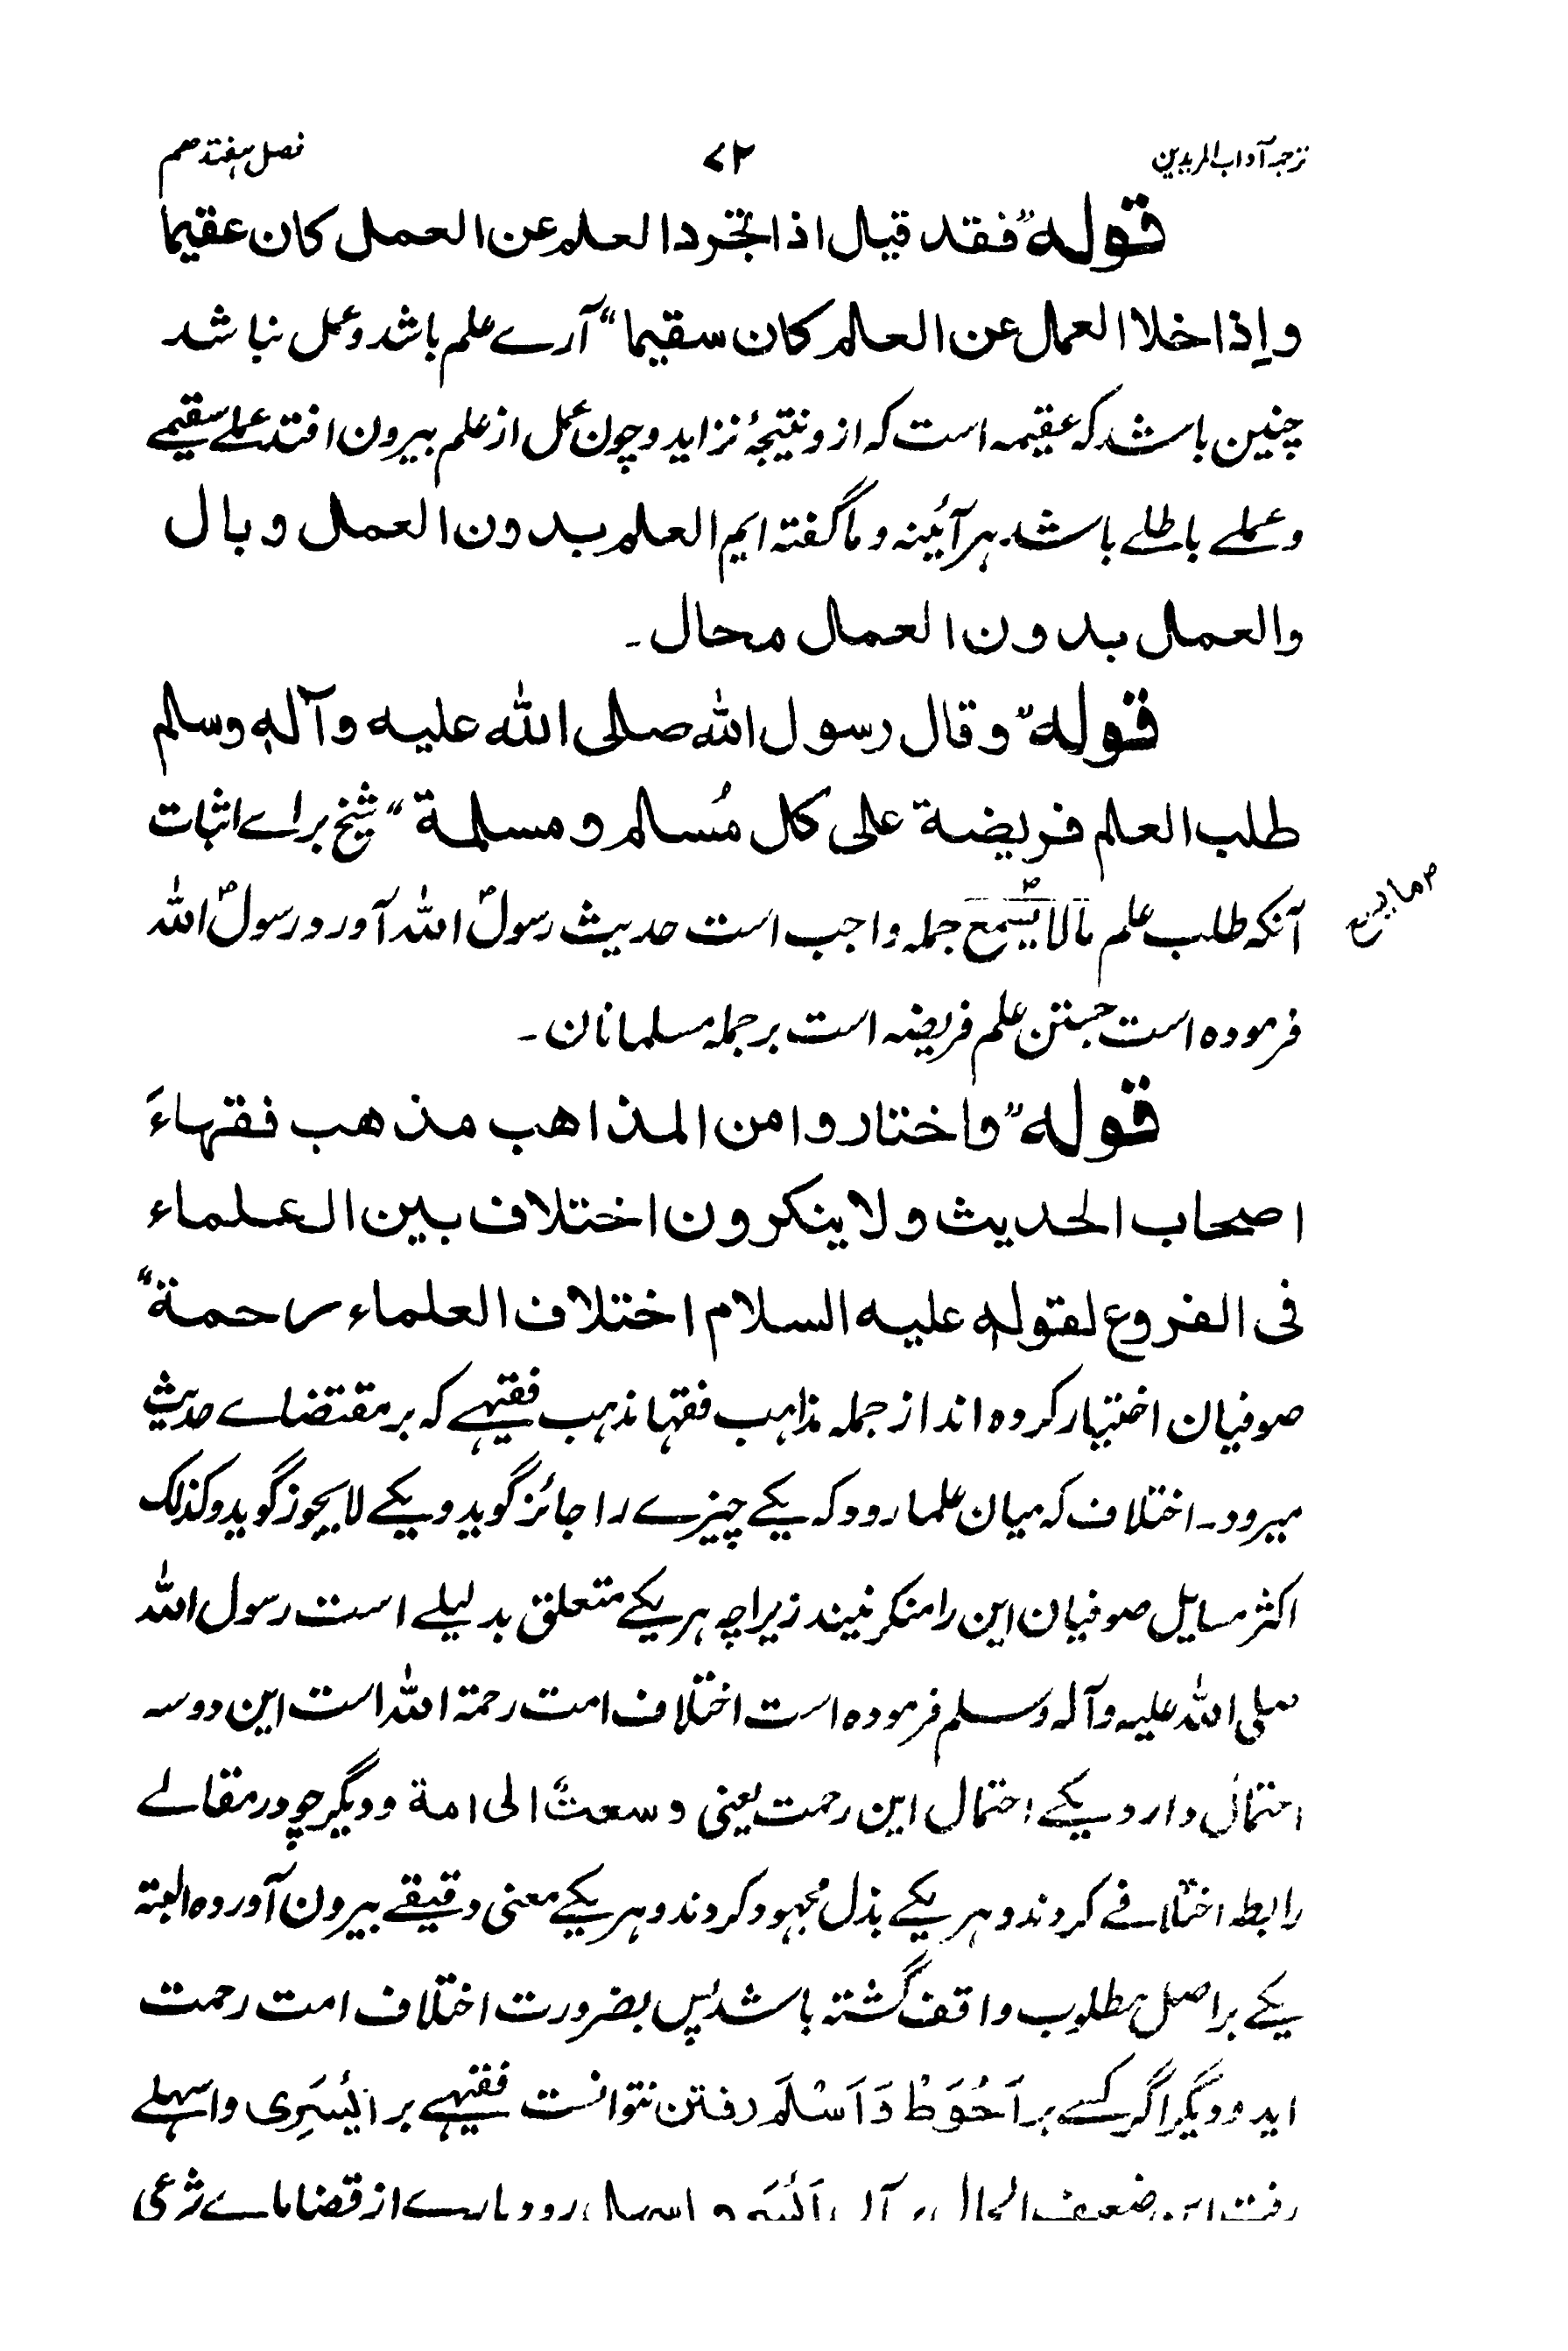 ترجمہ آداب المریدین ۷۲ فصل ہفتدہم
قولہ ”فقد قیل اذا تجرد العلم عن العمل کان عقیما
و اِذا خلا العمل عن العلم کان سقیما“ آرے علم باشد و عمل نباشد
چنین باشد کہ عقیمہ است کہ ازو نتیجۂ نزاید و چون عمل از علم بیرون افتد عملے سقیمے
و عملے باطلے باشد ہر آئینہ و ما گفتہ ایم العلم بدون العمل وبال
والعمل بدون العمل محال۔
قولہ ”وقال رسول اللہ صلی اللہ علیہ وآلہ وسلم
طلب العلم فریضة علی کل مُسلم و مسلمة“ شیخ براے اثبات
آنکہ طلب علم مالا یسمع جملہ واجب است حدیث رسولؐ اللہ آورد و رسولؐ اللہ
ص ما یسع
فرمودہ است جستن علم فریضہ است بر جملہ مسلمانان۔
قولہ ”واختاروا من المذاهب مذهب فقهاءَ
اصحاب الحدیث ولا ینکرون اختلاف بین العلماء
فی الفروع لقولہ علیہ السلام اختلاف العلماء رحمة“
صوفیان اختیار کردہ اند از جملہ مذاہب فقہا مذہب فقیہے کہ بر مقتضاے حدیث
میرود۔ اختلاف کہ میان علما رود کہ یکے چیزے را جائز گوید و یکے لایجوز گوید و کذلک
اکثر مسایل صوفیان این را منکر نیند زیراچہ ہر یکے متعلق بدلیلے است رسول اللہ
صلی اللہ علیہ وآلہ وسلم فرمودہ است اختلاف امت رحمة اللہ است این دو سہ
احتمال دارد یکے احتمال این رحمت یعنی وسعتً الی امة و دیگر چو در مقالے
رابطہ اختلافے کردند و ہر یکے بذل مجہود کردند و ہر یکے معنی دقیقے بیرون آوردہ البتہ
یکے بر اصل مطلوب واقف گشتہ باشد پس بضرورت اختلاف امت رحمت
اید و دیگر اگر کسے بر اَحْوَطْ وَاَسْلَمَ رفتن نتوانست فقیہے بر ایْسَرِی و اسہلے
رفت این ضعیف الحال بر آن اَیْسَر و اسہل رود بارے از قضایاے شرعی